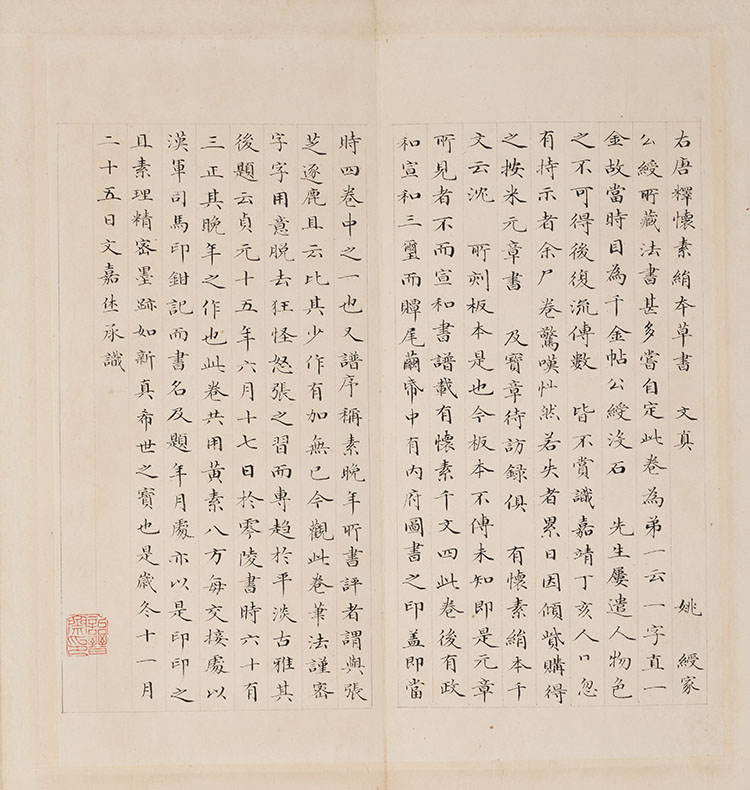 右唐釋懷素絹本草書 文真 姚 綬家
公綬所藏法書甚多嘗自定此卷為弟一云一字直一
金故當時目為千金帖公綬沒石 先生屢遣人物色
之不可得後復流傳數 皆不賞識嘉靖丁亥人口忽
有持示者余尸卷驚嘆怳然若失者累日因傾貲購得
之按米元章書 及寶章待訪録俱 有懷素絹本千
文云沈 所刻板本是也今板本不傳未知即是元章
所見者不而宣和書譜載有懷素千文四此卷後有政
和宣和三璽而贉尾繭帋中有內府圖書之印盖即當
時四卷中之一也又譜序稱素晚年所書評者謂與張
芝逐鹿且云比其少作有加無已今觀此卷筆法謹密
字字用意脫去狂怪怒張之習而專趨於平淡古雅其
後題云貞元十五年六月十七日於零陵書時六十有
三正其晚年之作也此卷共用黃素八方每交接處以
漢軍司馬印鉗記而書名及題年月處亦以是印印之
且素理精密墨跡如新真希世之寶也是歲冬十一月
二十五日文嘉休承識